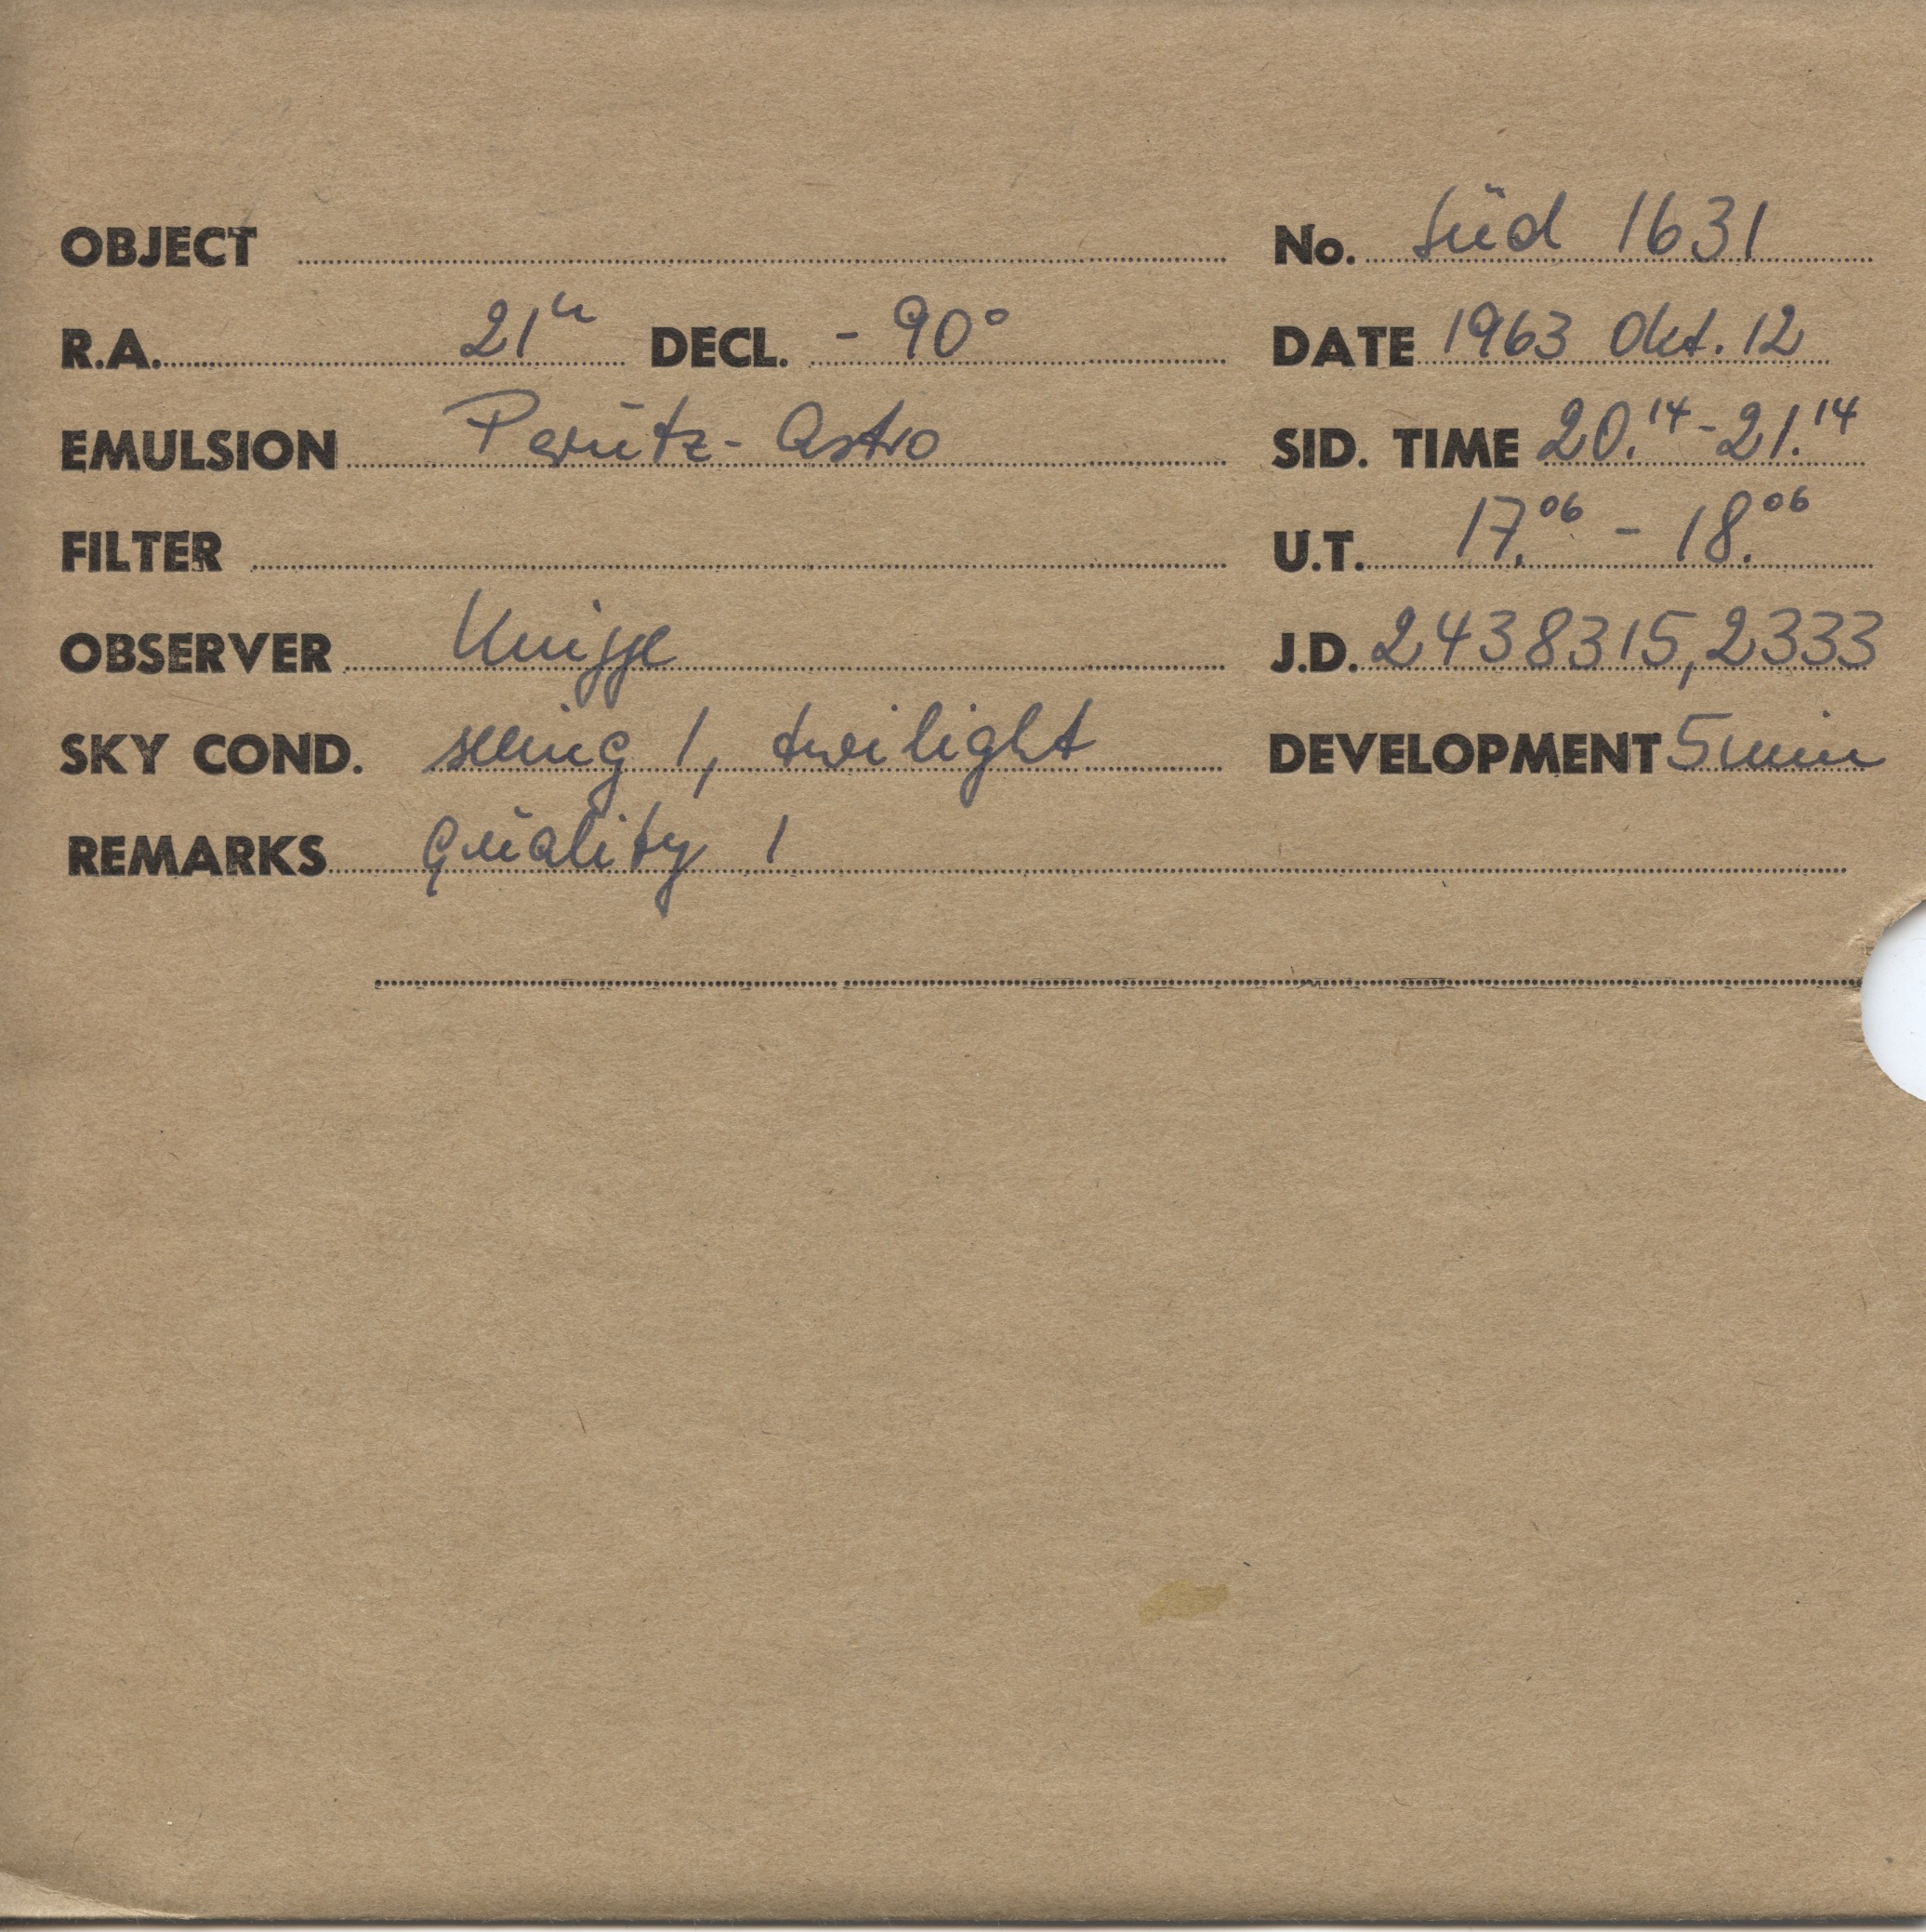 OBJECT No. Süd 1631
R.A. 21h DECL. - 90°
DATE 1963 Okt. 12
EMULSION Perutz - Astro
SID. TIME 20.14 - 21.14
FILTER
U.T. 17.06 - 18.06
OBSERVER Knigge
J.D. 2438315,2333
SKY COND. seeing 1, twilight
DEVELOPMENT 5 min
REMARKS quality 1